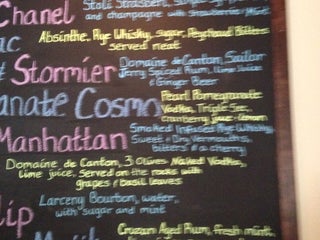 Stoli Strasberi,
Chanel and champagne with strawberry
ac Absinthe, Rye Whisky, sugar, Peychaud Bitters
served neat
Stormier Domaine de Canton, Sailor
Jerry Spiced Rum, lime juice
& Ginger Beer
anate Cosmo Pearl Pomegranate
Vodka, Triple Sec,
cranberry juice
Manhattan Smoked Infused Rye Whisky,
Sweet & Dry Vermouths,
bitters & a cherry
Domaine de Canton, 3 Olives Naked Vodka,
lime juice. Served on the rocks with
grapes & basil leaves
Larceny Bourbon, water,
with sugar and mint
Cruzan Aged Rum, fresh mint,